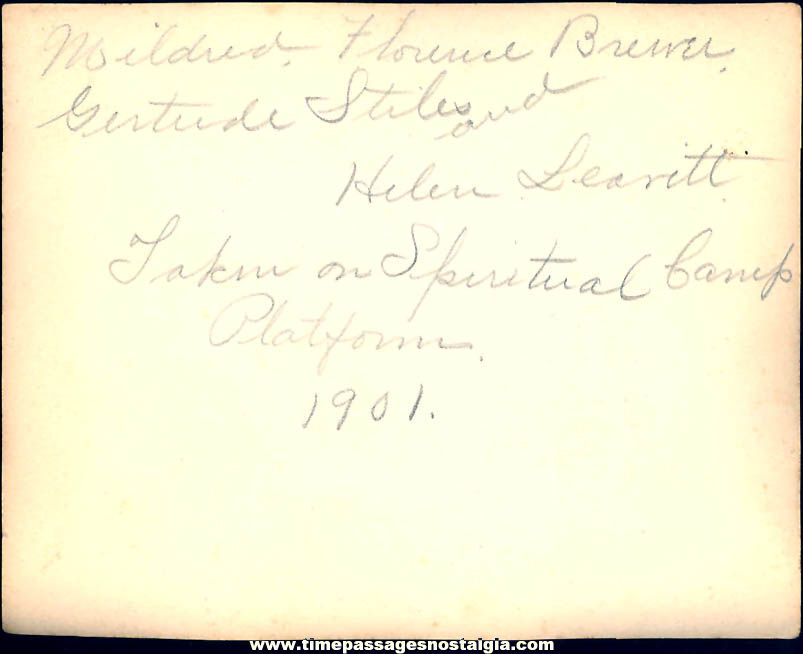 Mildred. Florence Brewer.
Gertrude Stiles and
Helen Leavitt.
Taken on Spiritual Camp
Platform.
1901.
www.timepassagesnostalgia.com